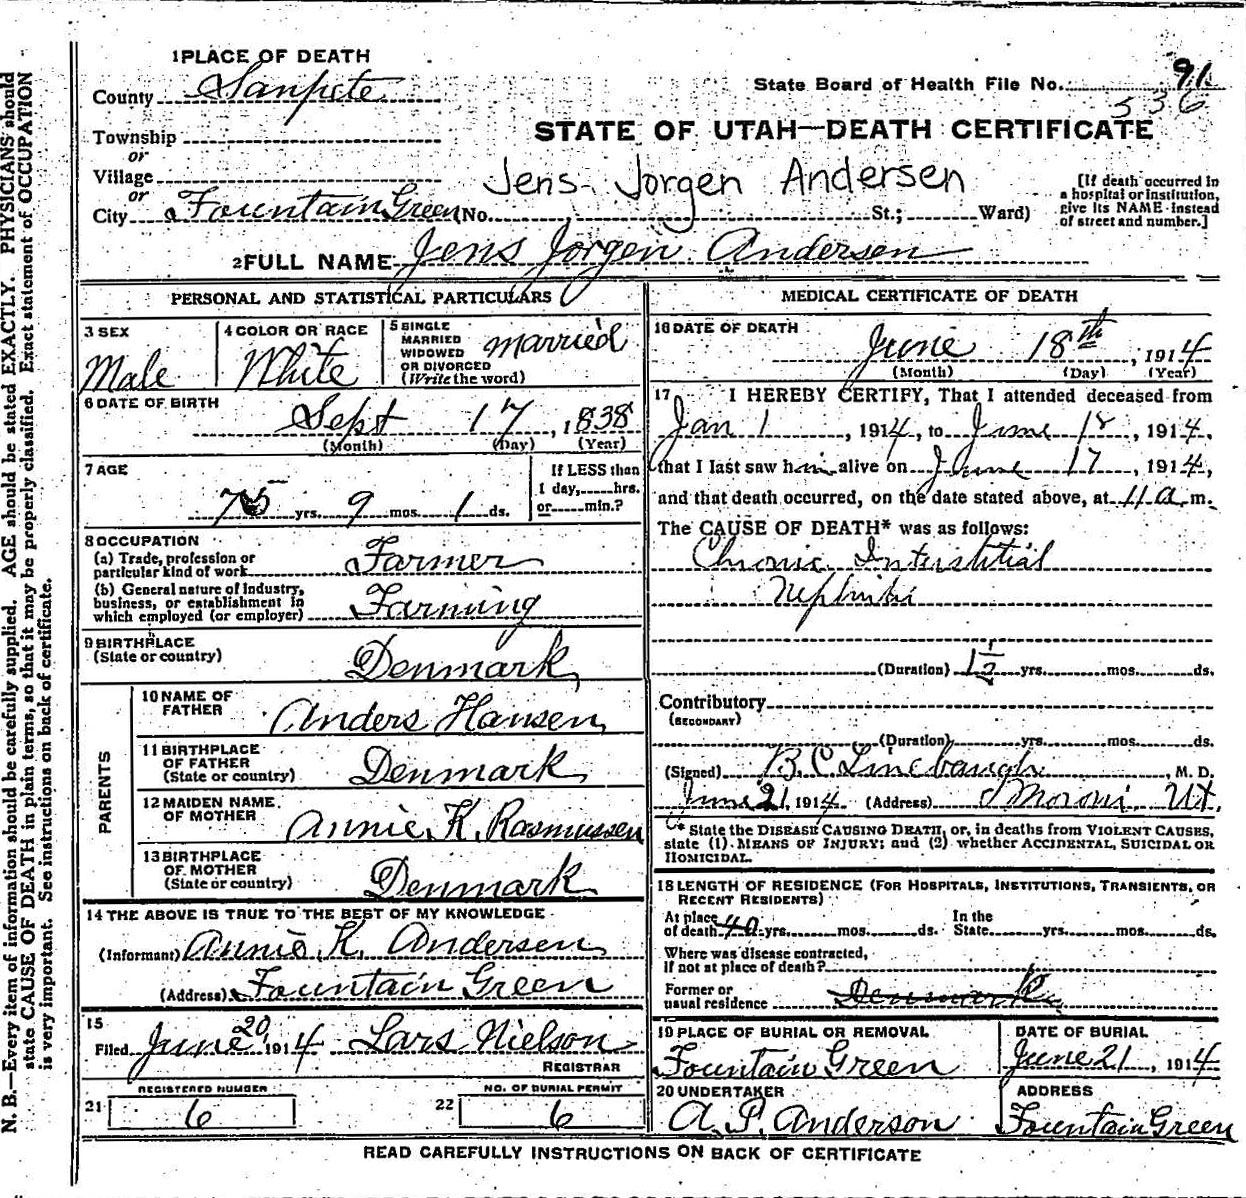 N. B.—Every item of information should be carefully supplied. AGE should be stated EXACTLY. PHYSICIANS should
state CAUSE OF DEATH in plain terms, so that it may be properly classified. Exact statement of OCCUPATION
is very important. See instructions on back of certificate.
1 PLACE OF DEATH
County Sanpete
Township
or
Village
or
City Fountain Green (No. St.; Ward)
State Board of Health File No. 91
536
STATE OF UTAH—DEATH CERTIFICATE
Jens Jorgen Andersen
[If death occurred in
a hospital or institution,
give its NAME instead
of street and number.]
2 FULL NAME Jens Jorgen Andersen
PERSONAL AND STATISTICAL PARTICULARS
3 SEX
Male
4 COLOR OR RACE
White
5 SINGLE
MARRIED
WIDOWED
OR DIVORCED
(Write the word)
married
6 DATE OF BIRTH
Sept 17, 1838
(Month) (Day) (Year)
7 AGE
75 yrs. 9 mos. 1 ds.
If LESS than
1 day, hrs.
or min.?
8 OCCUPATION
(a) Trade, profession or
particular kind of work Farmer
(b) General nature of industry,
business, or establishment in
which employed (or employer) Farming
9 BIRTHPLACE
(State or country)
Denmark
PARENTS
10 NAME OF
FATHER
Anders Hansen
11 BIRTHPLACE
OF FATHER
(State or country)
Denmark
12 MAIDEN NAME
OF MOTHER
Annie K. Rasmussen
13 BIRTHPLACE
OF MOTHER
(State or country)
Denmark
14 THE ABOVE IS TRUE TO THE BEST OF MY KNOWLEDGE
(Informant) Annie K. Andersen
(Address) Fountain Green
15
Filed June 20, 1914 Lars Nielson
REGISTRAR
REGISTERED NUMBER
21 6
NO. OF BURIAL PERMIT
22 6
MEDICAL CERTIFICATE OF DEATH
16 DATE OF DEATH
June 18th, 1914
(Month) (Day) (Year)
17 I HEREBY CERTIFY, That I attended deceased from
Jan 1, 1914, to June 18, 1914,
that I last saw him alive on June 17, 1914,
and that death occurred, on the date stated above, at 11 a m.
The CAUSE OF DEATH* was as follows:
Chronic Interstitial
Nephritis
(Duration) 1 1/2 yrs. mos. ds.
Contributory
(SECONDARY)
(Duration) yrs. mos. ds.
(Signed) B. C. Linebaugh, M. D.
June 21, 1914 (Address) Moroni Ut.
* State the DISEASE CAUSING DEATH, or, in deaths from VIOLENT CAUSES,
state (1) MEANS OF INJURY; and (2) whether ACCIDENTAL, SUICIDAL OR
HOMICIDAL.
18 LENGTH OF RESIDENCE (FOR HOSPITALS, INSTITUTIONS, TRANSIENTS, OR
RECENT RESIDENTS)
At place
of death 40 yrs. mos. ds.
In the
State yrs. mos. ds.
Where was disease contracted,
if not at place of death?
Former or
usual residence Denmark
19 PLACE OF BURIAL OR REMOVAL
Fountain Green
DATE OF BURIAL
June 21, 1914
20 UNDERTAKER
A. P. Anderson
ADDRESS
Fountain Green
READ CAREFULLY INSTRUCTIONS ON BACK OF CERTIFICATE